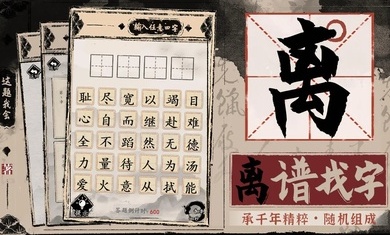 这题我会
输入任意四字
耻尽宽以竭目
心自而继赴难
全不蹈然无德
力量待人为汤
爱火意从拭能
答题倒计时:600
离
离谱找字
承千年精粹·随机组成